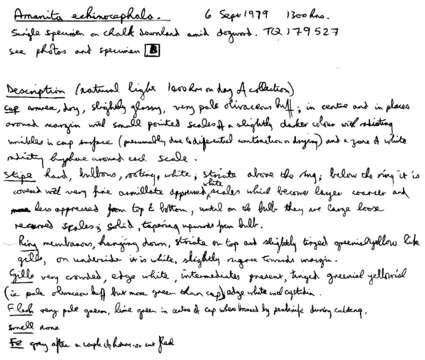 Amanita echinocephala. 6 Sept 1979 1300 hrs.
Single specimen on chalk downland amid dogwood. TQ 179527
see photos and specimen B
Description (natural light 1600 hrs on day of collection)
Cap convex, dry, slightly glossy, very pale olivaceous buff; in centre and in places
around margin with small pointed scales of a slightly darker colour with radiating
wrinkles in cap surface (presumably due to differential contraction on drying) and a zone of white
radiating hyphae around each scale.
Stipe hard, bulbous, rooting, white, striate above the ring; below the ring it is
covered with very fine appressed white scales which become larger coarser and
less appressed from top to bottom, until on the bulb they are large loose
recurved scales; solid, tapering upwards from bulb.
Ring membranous, hanging down, striate on top and slightly tinged greenish yellow like
gills, on underside it is white, slightly rugose towards margin.
Gills very crowded, edge white, intermediates present, tinged greenish yellowish
(ie pale olivaceous buff but more green than cap) edge white with cystidia.
Flesh very pale green, lime green in centre of cap when bruised by penknife during cutting.
Smell none
gray after a couple of hours on cut flesh